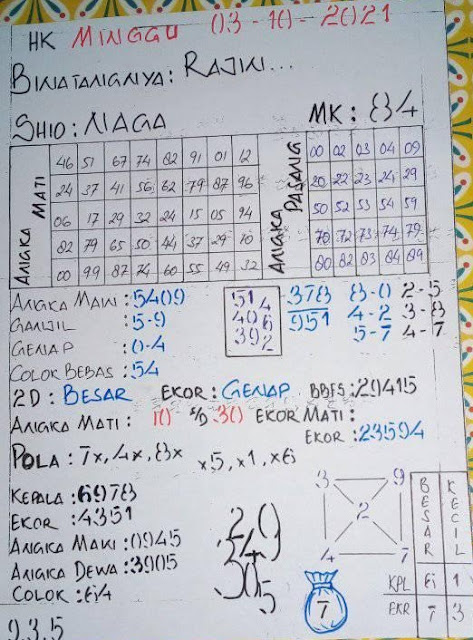 HK MINGGU 03-10-2021
BINATANGNYA: RAJIN...
SHIO: NAGA MK: 84
ANGKA MATI
46 51 67 74 82 91 01 12
24 37 41 56 62 79 87 96
06 17 29 32 24 15 05 94
82 79 65 50 44 37 29 10
00 99 87 74 60 55 49 32
ANGKA PASANG
00 02 03 04 09
20 22 23 24 29
50 52 53 54 59
70 72 73 74 79
80 82 83 84 89
ANGKA MAIN: 5409
GANJIL: 5-9
GENAP: 0-4
COLOK BEBAS: 54
514
406
392
378
951
8-0 2-5
4-2 3-8
5-7 4-7
2D: BESAR EKOR: GENAP BBFS: 29415
ANGKA MATI: 10 S/D 30 EKOR MATI:
EKOR: 23594
POLA: 7x, 4x, 8x x5, x1, x6
KEPALA: 6978
EKOR: 4351
ANGKA MAIN: 0945
ANGKA DEWA: 3905
COLOK: 64
29
349
305
3 9
2
4 7
7
BESAR KECIL
KPL 6 1
EKR 7 3
935